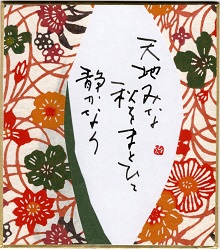 天地みな
秋をまとひて
静かなり